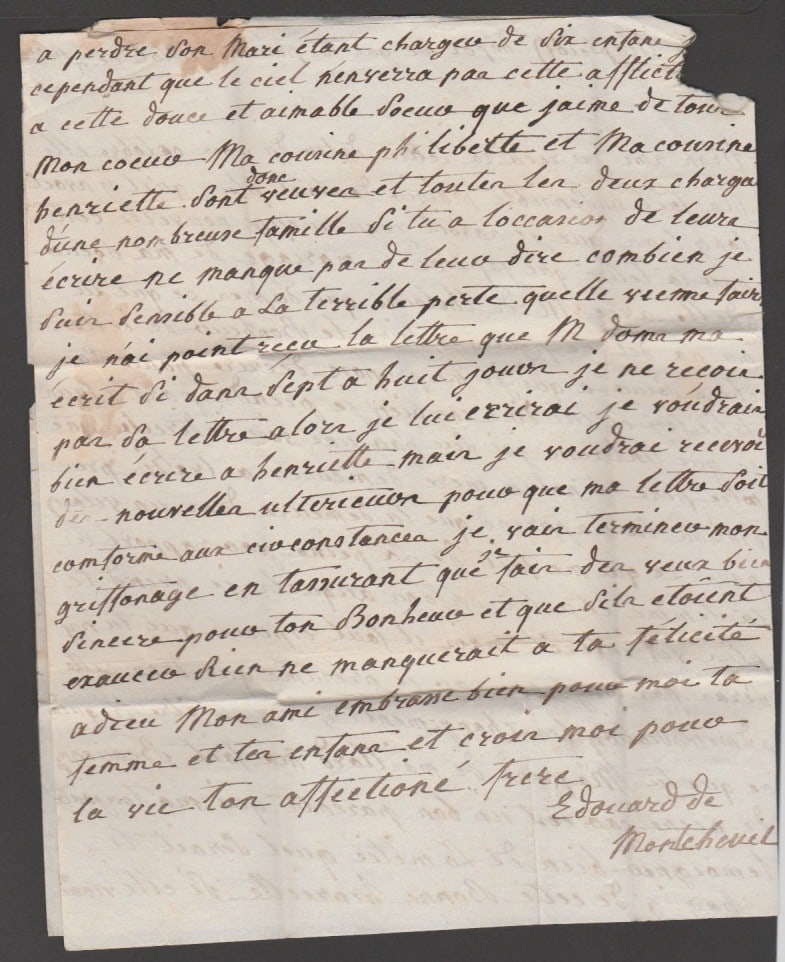 a perdre son Mari étant chargeu de six enfans
cependant que le ciel n'enverra pas cette afflict
a cette douce et aimable soeur que jaime de tout
mon coeur Ma cousine philibette et Ma cousine
henriette sont donc veuves et toutes les deux charga
d'une nombreuse famille si tu a loccasion de leurs
écrire ne manque pas de leur dire combien je
suis sensible a la terrible perte quelle vienne fair
je n'ai point recu la lettre que M doms ma
écrit si dans sept a huit jours je ne recois
pas sa lettre alors je lui ecrirai je voudrais
bien écrire a henriette mais je voudrai recevoi
des nouvelles ulterieures pour que ma lettre soit
comforme aux circonstances je vais terminer mon
griffonage en tassurant que je fais des veux bien
sincere pour ton Bonheur et que sils etoient
exauceu Rien ne manquerait a ta félicité
adieu Mon ami embrasse bien pour moi ta
femme et tes enfans et crois moi pour
la vie ton affectioné frere
Edouard de
Montcheuil